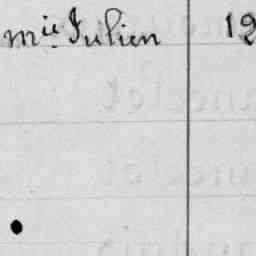 mie Julien 19